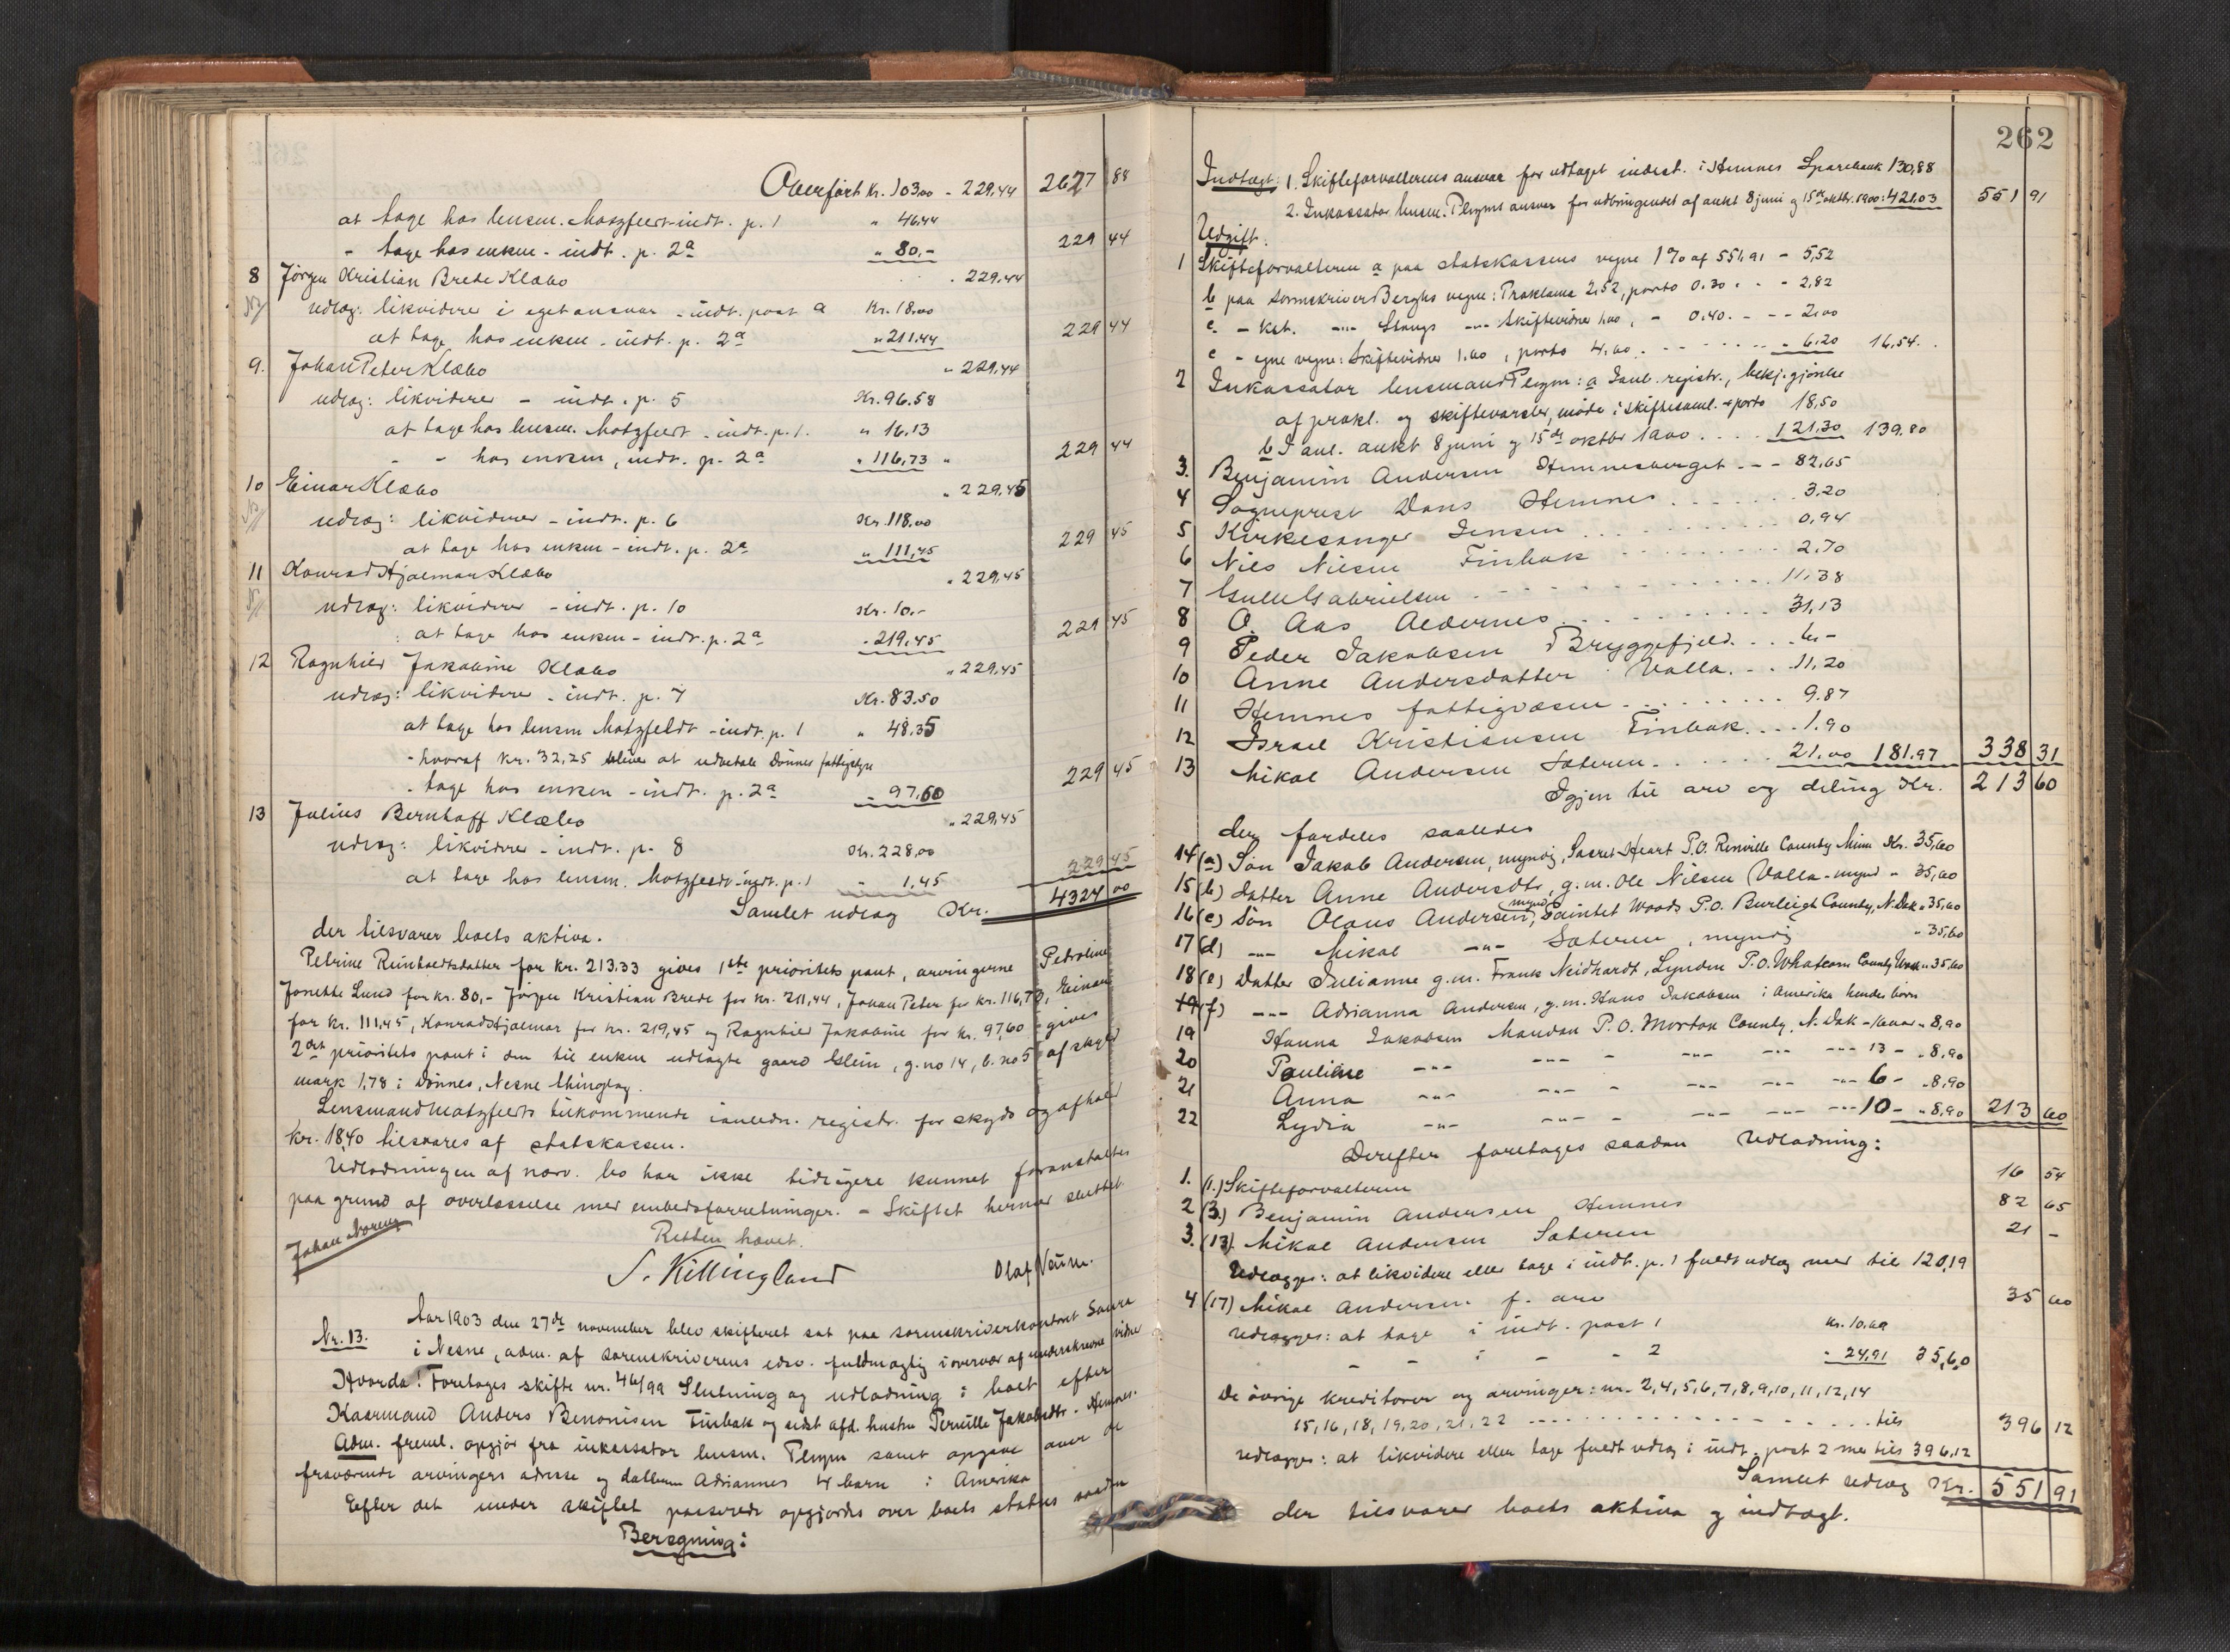 Overført Kr. 103,00 - 229,44 2627 88
at tage hos lensm. Motzfeldt - indt. p. 1 " 46,44
- tage hos enken - indt. p. 2a " 80,- 229 44
8 Jørgen Kristian Brede Klæbo - 229,44
udlæg: likviderer i eget ansvar - indt. post a Kr. 18,00
at tage hos enken - indt. p. 2a " 211,44 229 44
9. Johan Peter Klæbo " 229,44
udlæg: likviderer - indt. p. 5 Kr. 96.58
at tage hos lensm. Motzfeldt - indt. p. 1. " 16,13
- - hos enken, indt. p. 2a " 116,73 " 229 44
10 Einar Klæbo " 229,45
udlæg: likviderer - indt. p. 6 Kr. 118,00
at tage hos enken - indt. p. 2a " 111,45 229 45
11 Konrad Hjalmar Klæbo " 229,45
udlæg: likviderer - indt. p. 10 Kr. 10,-
at tage hos enken - indt. p. 2a - 219,45 229 45
12 Ragnhild Jakobine Klæbo " 229,45
udlæg: likviderer - indt. p. 7 Kr. 83.50
at tage hos lensm Motzfeldt - indt. p. 1 " 48,35
- hvoraf kr. 32,25 bliver at udbetale Dønnes fattigstyre
- tage hos enken - indt. p. 2a - 97,60 229 45
13 Julius Bernhoff Klæbo " 229,45
udlæg: likviderer - indt. p. 8 Kr. 228,00
at tage hos lensm. Motzfeldt - indt. p. 1 - 1,45 229 45
Samlet udlæg Kr. 4324 00
der tilsvarer boets aktiva.
Petrine Reinholdtsdatter for kr. 213.33 gives 1ste prioritets pant, arvingerne Petroline
Jonette Lund for kr. 80,- Jørgen Kristian Brede for kr. 211,44, Johan Peter for kr. 116,73, Einar
for kr. 111,45, Konrad Hjalmar for kr. 219,45 og Ragnhild Jakobine for kr. 97,60 - gives
2det prioritets pant i den til enken udlagte gaard Glein, g.no 14, b. no 5 af skyld
mark 1,78 i Dønnes, Nesne thinglag.
Lensmand Motzfeldts tilkommende i anledn. registr. for skyds og ophold
kr. 18,40 tilsvares af statskassen.
Udlodningen af nærv. bo har ikke tidligere kunnet foranstaltes
paa grund af overlæsselse med embedsforretninger. - Skiftet hermed sluttet.
Retten hævet.
Johan Norum
S. Killingland
Olaf Neürn.
Nr. 13. Aar 1903 den 27de november blev skifteret sat paa sorenskriverkontoret Saura
i Nesne, adm. af sorenskriverens edsv. fuldmægtig i overvær af underskrevne vidner
Hvorda: Foretages skifte nr. 46/99 Slutning og udlodning i boet efter
Kaarmand Anders Benonisen Finbak og sidst afd. hustru Pernille Jakobsdtr. - Hemnes.
Adm. freml. opgjør fra inkassator lensm. Plym samt opgave over de
fraværende arvingers adresse og datteren Adriannes 4 børn i Amerika
Efter det under skiftet passerede opgjordes over boets status saadan
Beregning:
262
Indtægt: 1. Skifteforvalterens ansvar for udtaget indest. i Hemnes Sparebank 130,88
2. Inkassator lensm. Plyms ansvar for udbringendet af aukt 8 juni og 15de oktbr. 1900: 421.03 551 91
Udgift.
1 Skifteforvalteren a paa statskassens vegne 1% af 551,91 - 5,52
b paa sorenskriver Berghs vegne: Proklama 2,52, porto 0.30 . . - 2,82
c. - kst. -"- Stangs -"- Skiftevidner 1,60, - 0,40. - - - 2,00
c - egne vegne: Skiftevidner 1.60, porto 4,60 . - - - - - 6.20 16,54.
2 Inkassator lensmand Plym: a I anl. registr., bekj.gjørelse
af prokl. og skiftevarsler, møde i skiftesaml. + porto 18,50
b I anl. aukt 8 juni og 15de oktbr 1900 . . . . 121,30 139,80
3. Benjamin Andersen Hemnesberget - - - 82,65
4 Sogneprest Dons Hemnes . . . . . . 3,20
5 Kirkesanger Jensen . . . . . . . . 0,94
6 Nils Nilsen Finbak . . . . . . . . 2.70
7 Gabrielsen . . . . . . . . 11,38
8 O Aas Aldernes . . . . . . . . 31,13
9 Peder Jakobsen Bryggefjeld. . . . 6,-
10 Anne Andersdatter Valla. . . . 11,20
11 Hemnes fattigvæsen . . . . . . . . 9.87
12 Israel Kristiansen Finbak. . . . 1.90
13 Mikal Andersen Sæteren . . . . . . 21,00 181.97 338 31
Igjen til arv og deling Kr. 213 60
der fordeles saaledes
14 (a) Søn Jakob Andersen, myndig, Sacret Heart P.O. Renville County Minn Kr. 35,60
15 (b) Datter Anne Andersdtr, g.m. Ole Nilsen Valla - mynd - 35,60
16 (c) Søn Olaus Andersen, mynd, Paintet Woods P.O. Burleigh County, N. Dak " 35,60
17 (d) -"- Mikal -"- Sæteren, myndig " 35,60
18 (e) Datter Julianne g.m. Frank Neidhardt, Lynden P.O. Whatcom County Wash " 35,60
19 (f) -"- Adrianna Andersen, g.m. Hans Jakobsen i Amerika hendes børn
19 Hanna Jakobsen Mandan P.O. Morton County, N. Dak - 16 aar " 8,90
20 Pauline -"- -"- - -"- -"- -"- 13 - " 8,90
21 Anna -"- -"- - -"- -"- -"- 6 - " 8,90
22 Lydia -"- -"- - -"- -"- -"- 10 - " 8,90 213 60
Derefter foretages saadan Udlodning:
1. (1.) Skifteforvalteren 16 54
2 (3.) Benjamin Andersen Hemnes 82 65
3. (13). Mikal Andersen Sæteren 21 -
Udlægges: at likvidere eller tage i indt. p. 1 fuldt udlæg med til 120,19
4 (17) Mikal Andersen f. arv 35 60
udlægges: at tage i indt. post 1 Kr. 10.69
- - i - - 2 - 24,91 35,60
De øvrige kreditorer og arvinger: nr. 2, 4, 5, 6, 7, 8, 9, 10, 11, 12, 14
15, 16, 18, 19, 20, 21, 22 . . . . . . . . . . tils 396 12
udlægges: at likvidere eller tage fuldt udlæg i indt. post 2 med tils 396,12
Samlet udlæg Kr. 551 91
der tilsvarer boets aktiva og indtægt.